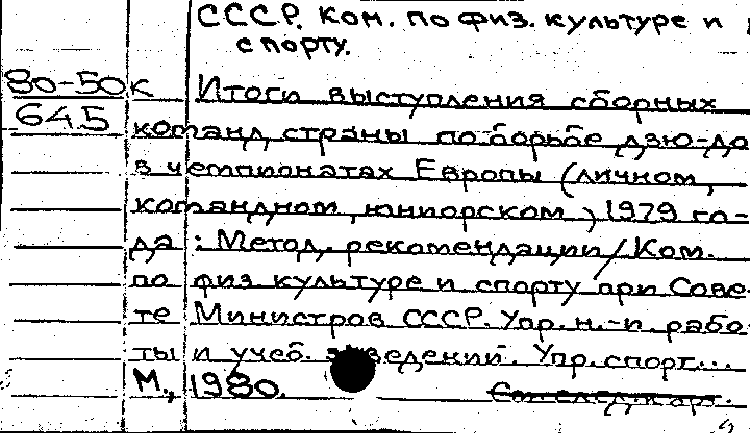 СССР. Ком. по физ. культуре и
спорту.
80-50к Итоги выступления сборных
645 команд страны по борьбе дзю-до
в чемпионатах Европы (личном,
командном, юниорском) 1979 го-
да : Метод. рекомендации / Ком.
по физ. культуре и спорту при Сове-
те Министров СССР. Упр. н.-и. рабо-
ты и учеб. заведений. Упр. спорт...
М., 1980.
См. след. карт.